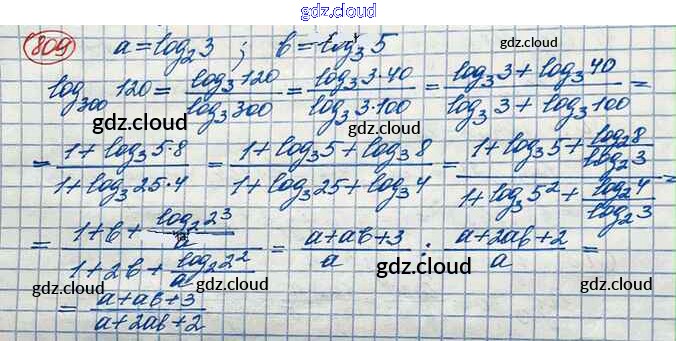 gdz.cloud
809 a = log₂3 ; b = log₃5 gdz.cloud
log₃₀₀120 = log₃120 / log₃300 = log₃3·40 / log₃3·100 = (log₃3 + log₃40) / (log₃3 + log₃100) =
gdz.cloud gdz.cloud gdz.cloud
= (1 + log₃5·8) / (1 + log₃25·4) = (1 + log₃5 + log₃8) / (1 + log₃25 + log₃4) = (1 + log₃5 + log₂8/log₂3) / (1 + log₃5² + log₂4/log₂3) =
gdz.cloud gdz.cloud
= (1 + b + log₂2³/a) / (1 + 2b + log₂2²/a) = (a + ab + 3)/a : (a + 2ab + 2)/a =
gdz.cloud gdz.cloud gdz.cloud gdz.cloud
= (a + ab + 3) / (a + 2ab + 2)
gdz.cloud gdz.cloud gdz.cloud